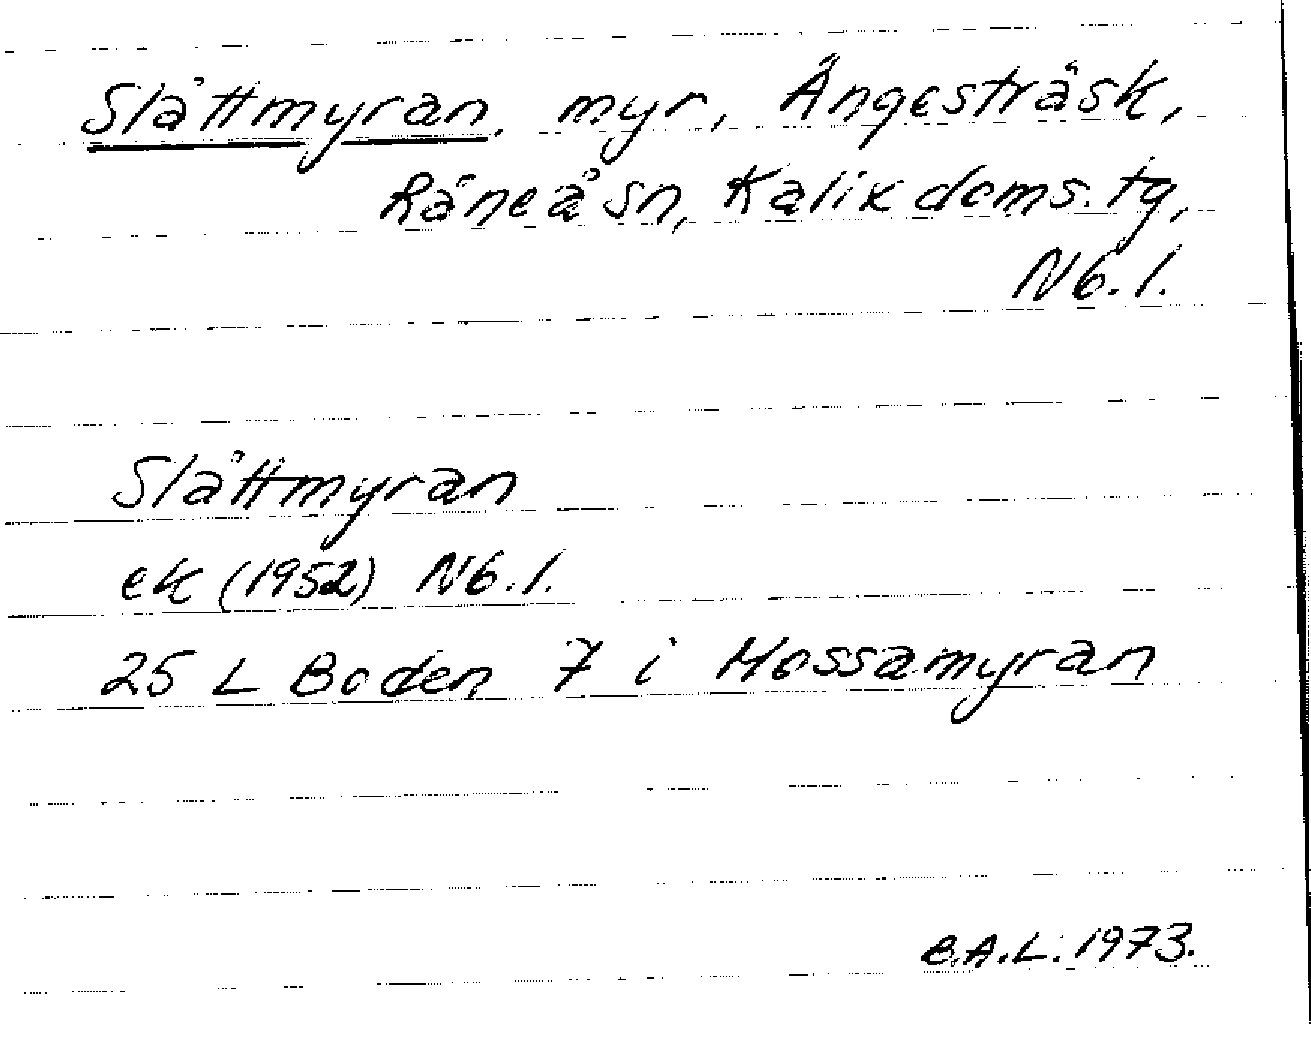 Slåttmyran, myr, Ängesträsk,
Råneå sn, Kalix doms. tg,
Nb. l.
Slåttmyran
ek (1952) Nb. l.
25 L Boden 7 i Mossamyran
E.A.L. 1973.